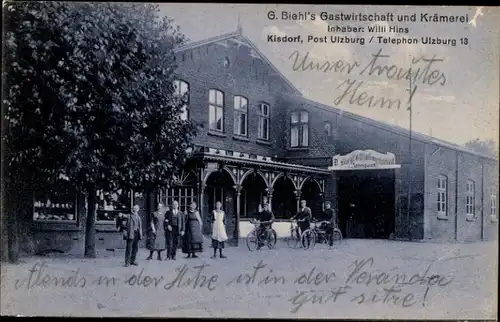 G. Biehl's Gastwirtschaft und Krämerei
Inhaber: Willi Hins
Kisdorf, Post Ulzburg / Telephon Ulzburg 13
Unser trautes
Heim!
Abends in der Hitze ist in der Veranda
gut sitze!